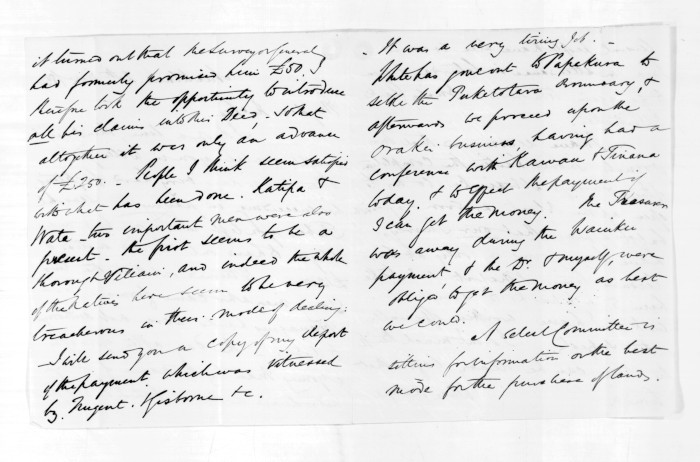 it turned out that the Surveyor General
had formerly promised him £50. I
therefore took the opportunity to introduce
all his claims into this Deed, so that
altogether it was only an advance
of £250. – People I think seem satisfied
with what has been done. Katipa &
Wata – two important men were also
present – the first seems to be a
thorough villain, and indeed the whole
of the Natives here seem to be very
treacherous in their mode of dealing.
– I will send you a copy of my report
of the payment, which was witnessed
by Nugent. Gisborne &c.
– It was a very tiring Job. –
White has gone out to Papakura to
settle the Puketotara Boundary, &
afterwards we proceed upon the
Orakei business, having had a
conference with Kawau & Tinana
today, & to effect the payment if
I can get the money. the Treasurer
was away during the Waiuku
payment & the Dr. & myself were
obliged to get the money as best
we could.
A select Committee is
sitting for information on the best
mode for the purchase of lands.